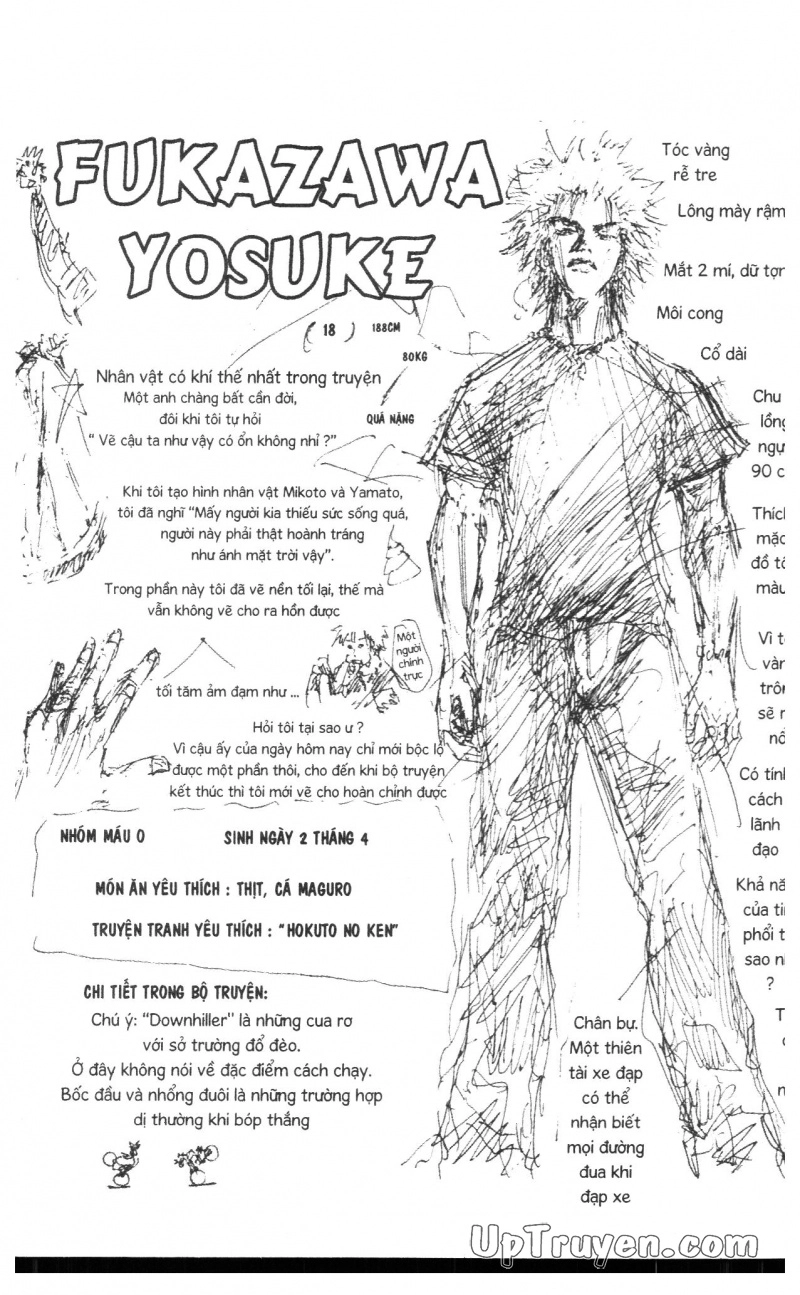 FUKAZAWA
YOSUKE
( 18 ) 188CM
80KG
QUÁ NẶNG
Nhân vật có khí thế nhất trong truyện
Một anh chàng bất cần đời,
đôi khi tôi tự hỏi
“ Vẽ cậu ta như vậy có ổn không nhỉ ?”
Khi tôi tạo hình nhân vật Mikoto và Yamato,
tôi đã nghĩ “Mấy người kia thiếu sức sống quá,
người này phải thật hoành tráng
như ánh mặt trời vậy”.
Trong phần này tôi đã vẽ nền tối lại, thế mà
vẫn không vẽ cho ra hồn được
Một
người
chính
trực
tối tăm ảm đạm như ...
Hỏi tôi tại sao ư ?
Vì cậu ấy của ngày hôm nay chỉ mới bộc lộ
được một phần thôi, cho đến khi bộ truyện
kết thúc thì tôi mới vẽ cho hoàn chỉnh được
NHÓM MÁU O SINH NGÀY 2 THÁNG 4
MÓN ĂN YÊU THÍCH : THỊT, CÁ MAGURO
TRUYỆN TRANH YÊU THÍCH : “HOKUTO NO KEN”
CHI TIẾT TRONG BỘ TRUYỆN:
Chú ý: “Downhiller” là những cua rơ
với sở trường đổ đèo.
Ở đây không nói về đặc điểm cách chạy.
Bốc đầu và nhổng đuôi là những trường hợp
dị thường khi bóp thắng
Tóc vàng
rễ tre
Lông mày rậm
Mắt 2 mí, dữ tợn
Môi cong
Cổ dài
Chu
lồng
ngự
90 c
Thích
mặc
đồ tố
màu
Vì tó
vàn
trôn
sẽ n
nổ
Có tính
cách
lãnh
đạo
Khả nă
của tim
phổi t
sao nh
?
Chân bự.
Một thiên
tài xe đạp
có thể
nhận biết
mọi đường
đua khi
đạp xe
UpTruyen.com